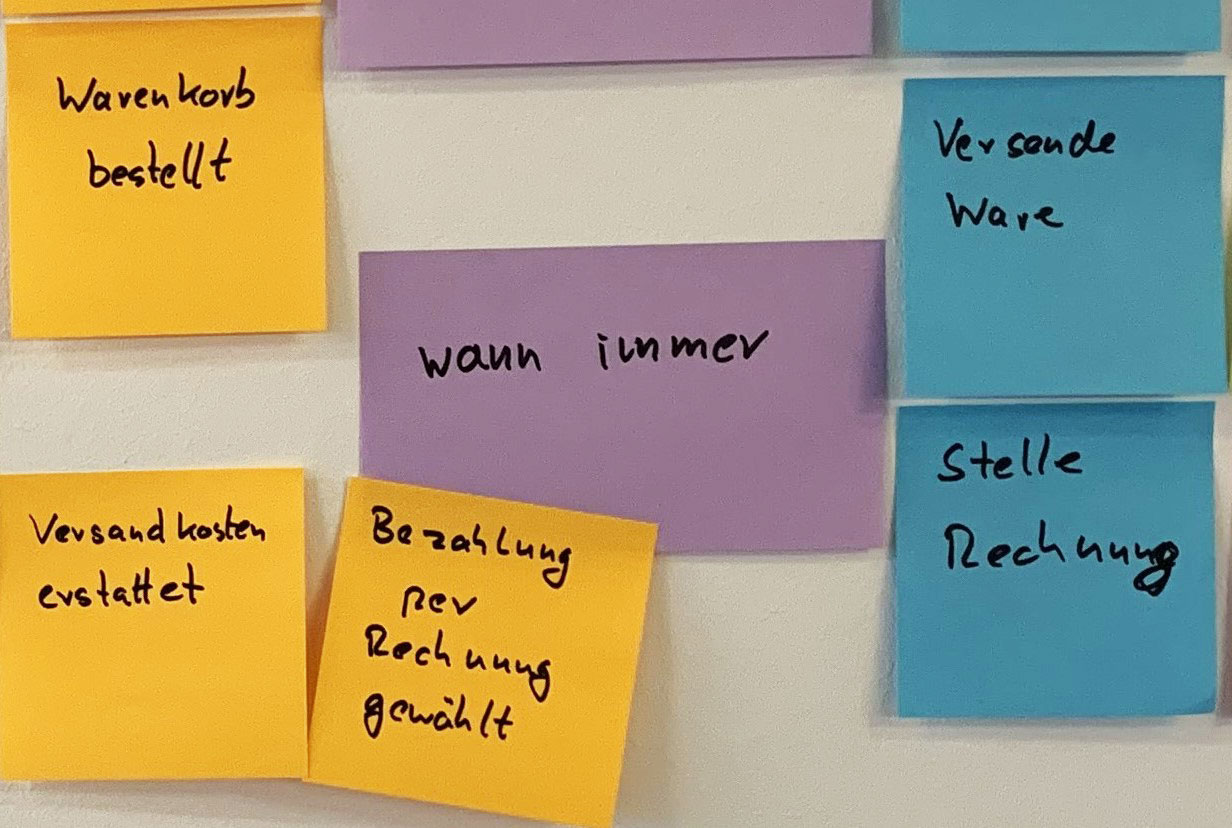 Warenkorb
bestellt
wann immer
Versende
Ware
Versandkosten
erstattet
Bezahlung
per
Rechnung
gewählt
Stelle
Rechnung